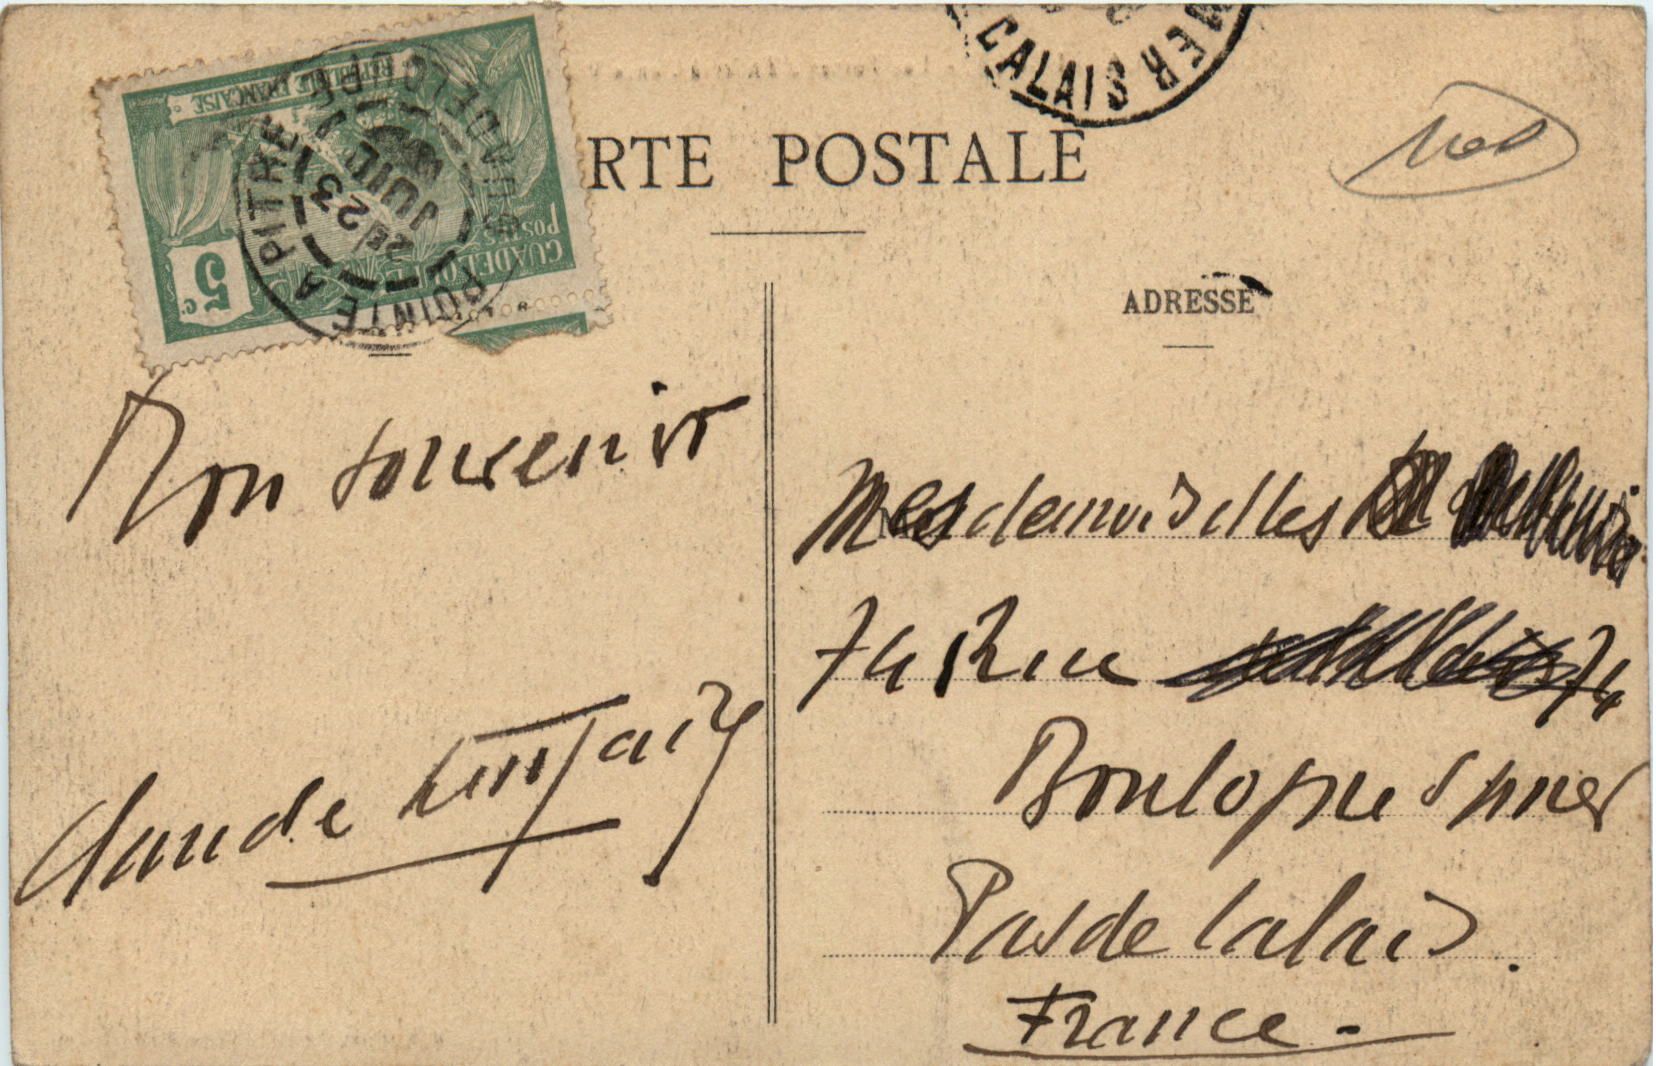 RÉPUBLIQUE FRANÇAISE
5 c
GUADELOUPE
POSTES
POINTE A PITRE
GUADELOUPE
23 JUIL
CALAIS
MER
RTE POSTALE
ADRESSE
Mon souvenir
Claude
Mesdemoiselles
74 Rue
74
Boulogne s mer
Pas de Calais.
France -